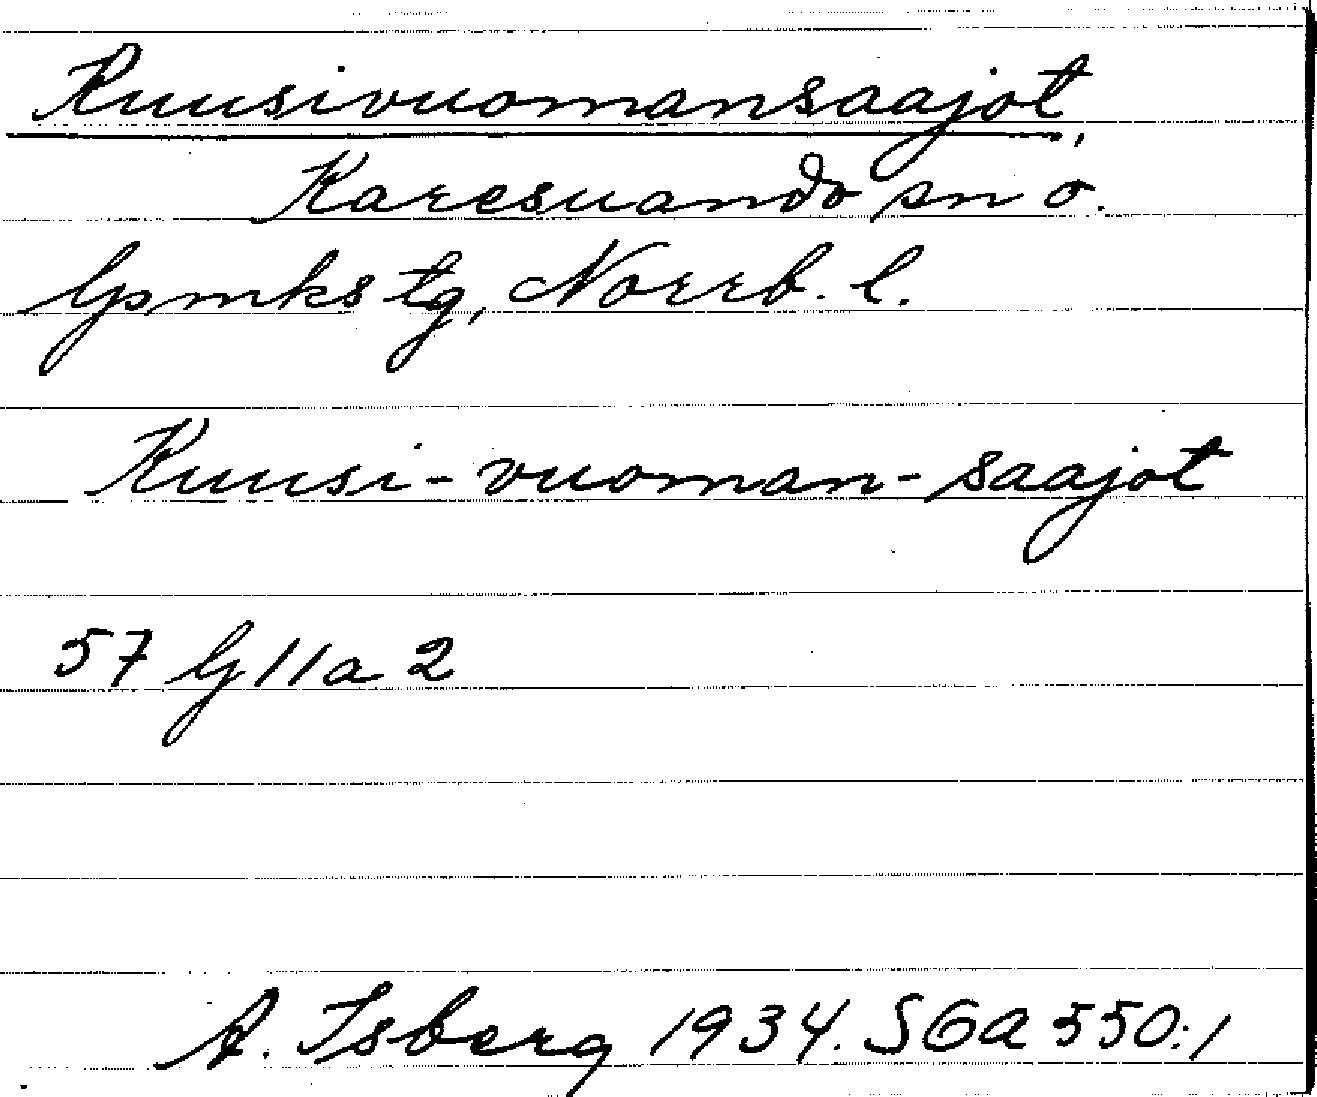 Kuusivuomansaajot,
Karesuando sn o.
lpmks tg, Norrb. l.
Kuusi-vuoman-saajot
57 G 11a 2
A. Isberg 1934. SGA 550:1